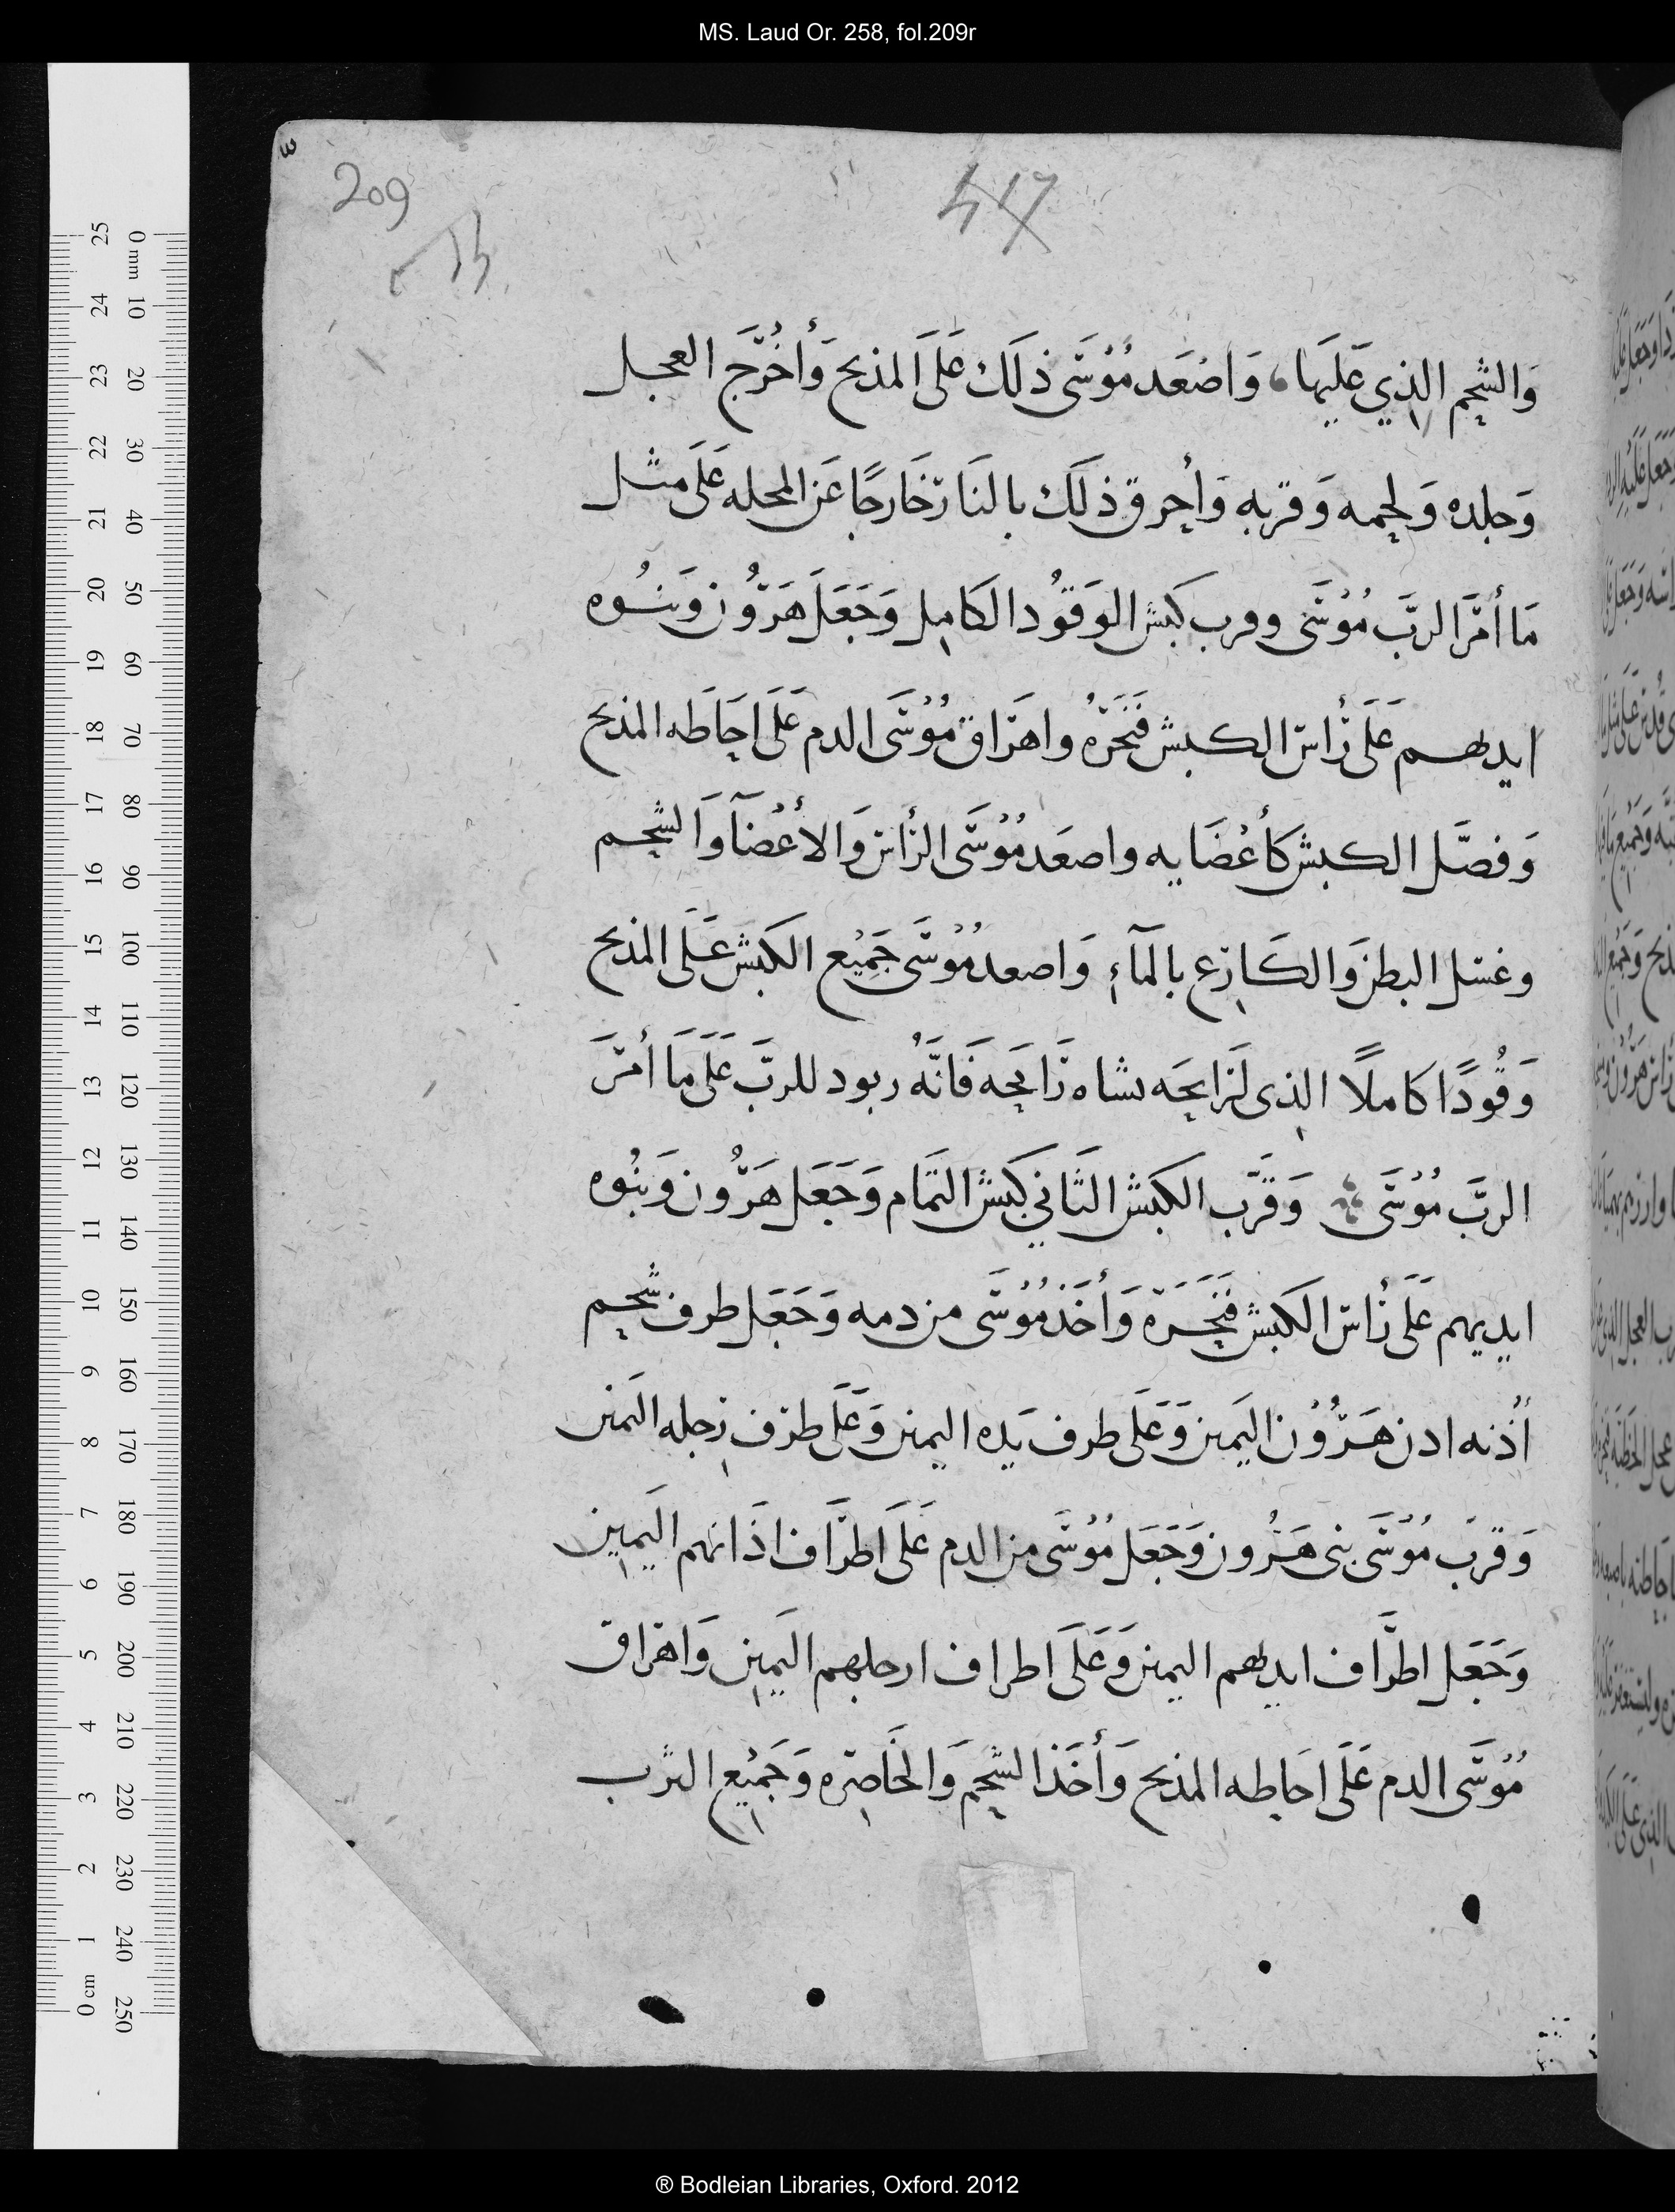 MS. Laud Or. 258, fol.209r
209
417
وَالشحم الذِي عَليَها، وَاصْعَد مُوْسَى ذلَك عَلَى المذبح وَأخْرَج العجل
وَجلده وَلحمه وَقربه وَأحرق ذلَك بالنَار خَارجًا عَن المحله عَلَى مثل
مَا أمَر الربَّ مُوْسَى وقرب كبش الوَقوُد الكَامِل وَجَعَل هَرُّون وَبنُوه
ايديهم عَلَى رَأس الكبش فَنَحَرَهُ واهَراق مُوْسَى الدم عَلَى احَاطَه المذبح
وَفصَّل الكبش كأعْضَايه واصعَد مُوْسَى الرَأس وَالأعْضَآ وَالشحم
وغسل البطن وَالكَارع بالمَآءِ وَاصعد مُوْسَى جَمِيْع الكبش عَلَى المذبح
وَقُودًا كاملًا الذِى لرَايحَه رَايحَه فَانَّهُ ربود للربَّ عَلَى مَا أمَرَ
الربَّ مُوْسَى وَقَرَّب الكبش الثَاني كَبش التمَام وَجَعَل هَرُّون وَبنُوه
ايديهم عَلَى رَأس الكَبش فَنَحَرَه وَأخَذ مُوْسَى من دمه وَجَعَل طرف شحم
أُذنه اذن هَرُّوْن اليَمين وَعَلَى طرف يَده اليمين وَعَلَى طرَف رجله اليَمين
وَقرَّب مُوْسَى بنى هَرُون وَجَعَل مُوْسَى من الدم عَلَى اطرَاف اذَانهم اليَمِين
وَجَعَل اطرَاف ايديهم اليمين وَعَلَى اطراف ارجلهم اليَمِين وَاهَراق
مُوْسَى الدم عَلَى احَاطه المذبح وَأخَذ الشحم وَالخَاصِرَه وَجَمِيْع الثرب
® Bodleian Libraries, Oxford. 2012